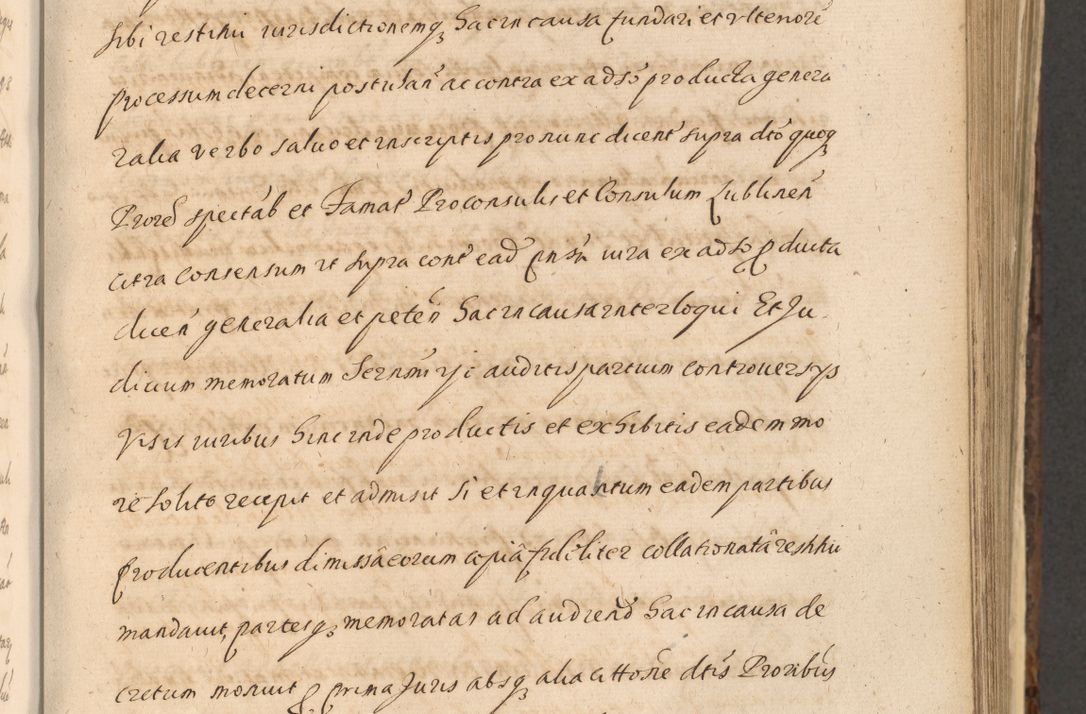 sibi restitui iurisdictionemq hac in causa fundari et ulteriorē
processum decerni postulan̄ ac contra ex adso producta genera
ralia verbo saluo et in scriptis pro nunc dicent supra dto quoq
Prore spectab et Famat Proconsulis et Consulum Lublinen
citra consensum ut supra cont ead iura ex adso producta
dicen generalia et peten hac in causa interloqui Et Ju
dicium memoratum auditis partium controversys
Visis iuribus hinc inde productis et exhibitis eadem mo
re solito recepit et admisit si et in quantum eadem partibus
producentibus dimissa eorum copiā fideliter collationatā restitui
mandavit, partesq memoratas ad audiend hac in causa de
cretum monuit prima Juris absq alia dtis Proribus